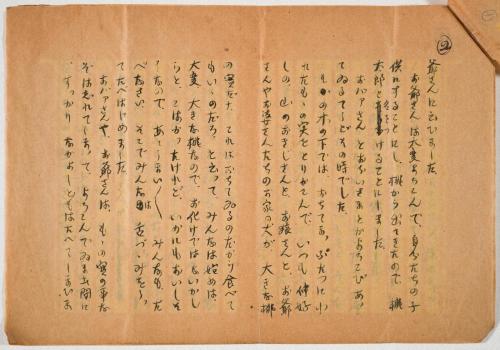 ②
爺さんに云ひました。
お爺さんは大変よろこんで、自分たちの子
供にすることにし、桃から出てきたので、桃
太郎と名をつけることにしました
おばあさんとおぢいさんとがよろこびあつ
てゐるてうどその時でした。
もゝの木の下では、おちてゐる
もゝの実をとりかこんで、いつも仲好
しの、山のおさるさんと、お猿さんと、お爺
さんやお婆さんたちのお家の犬が 大きな桃
の実だな、これはおちてゐるのだから食べて
もいゝのだらう、と云つて、みんなは始めは、
大変大きな桃なので、お化けではないかし
らと、こはがつたけれど、いかにもおいしそ
うなので、あゝうまい〱 みんなも、た
べなさい、そこでみんなは舌つゞみをうつ
てたべはじめました
おばあさんや、お爺さんは、もゝの実の事な
ぞは忘れてしまつて、よろこんでゐました間に
すつかり なかよしともはたべてしまひま